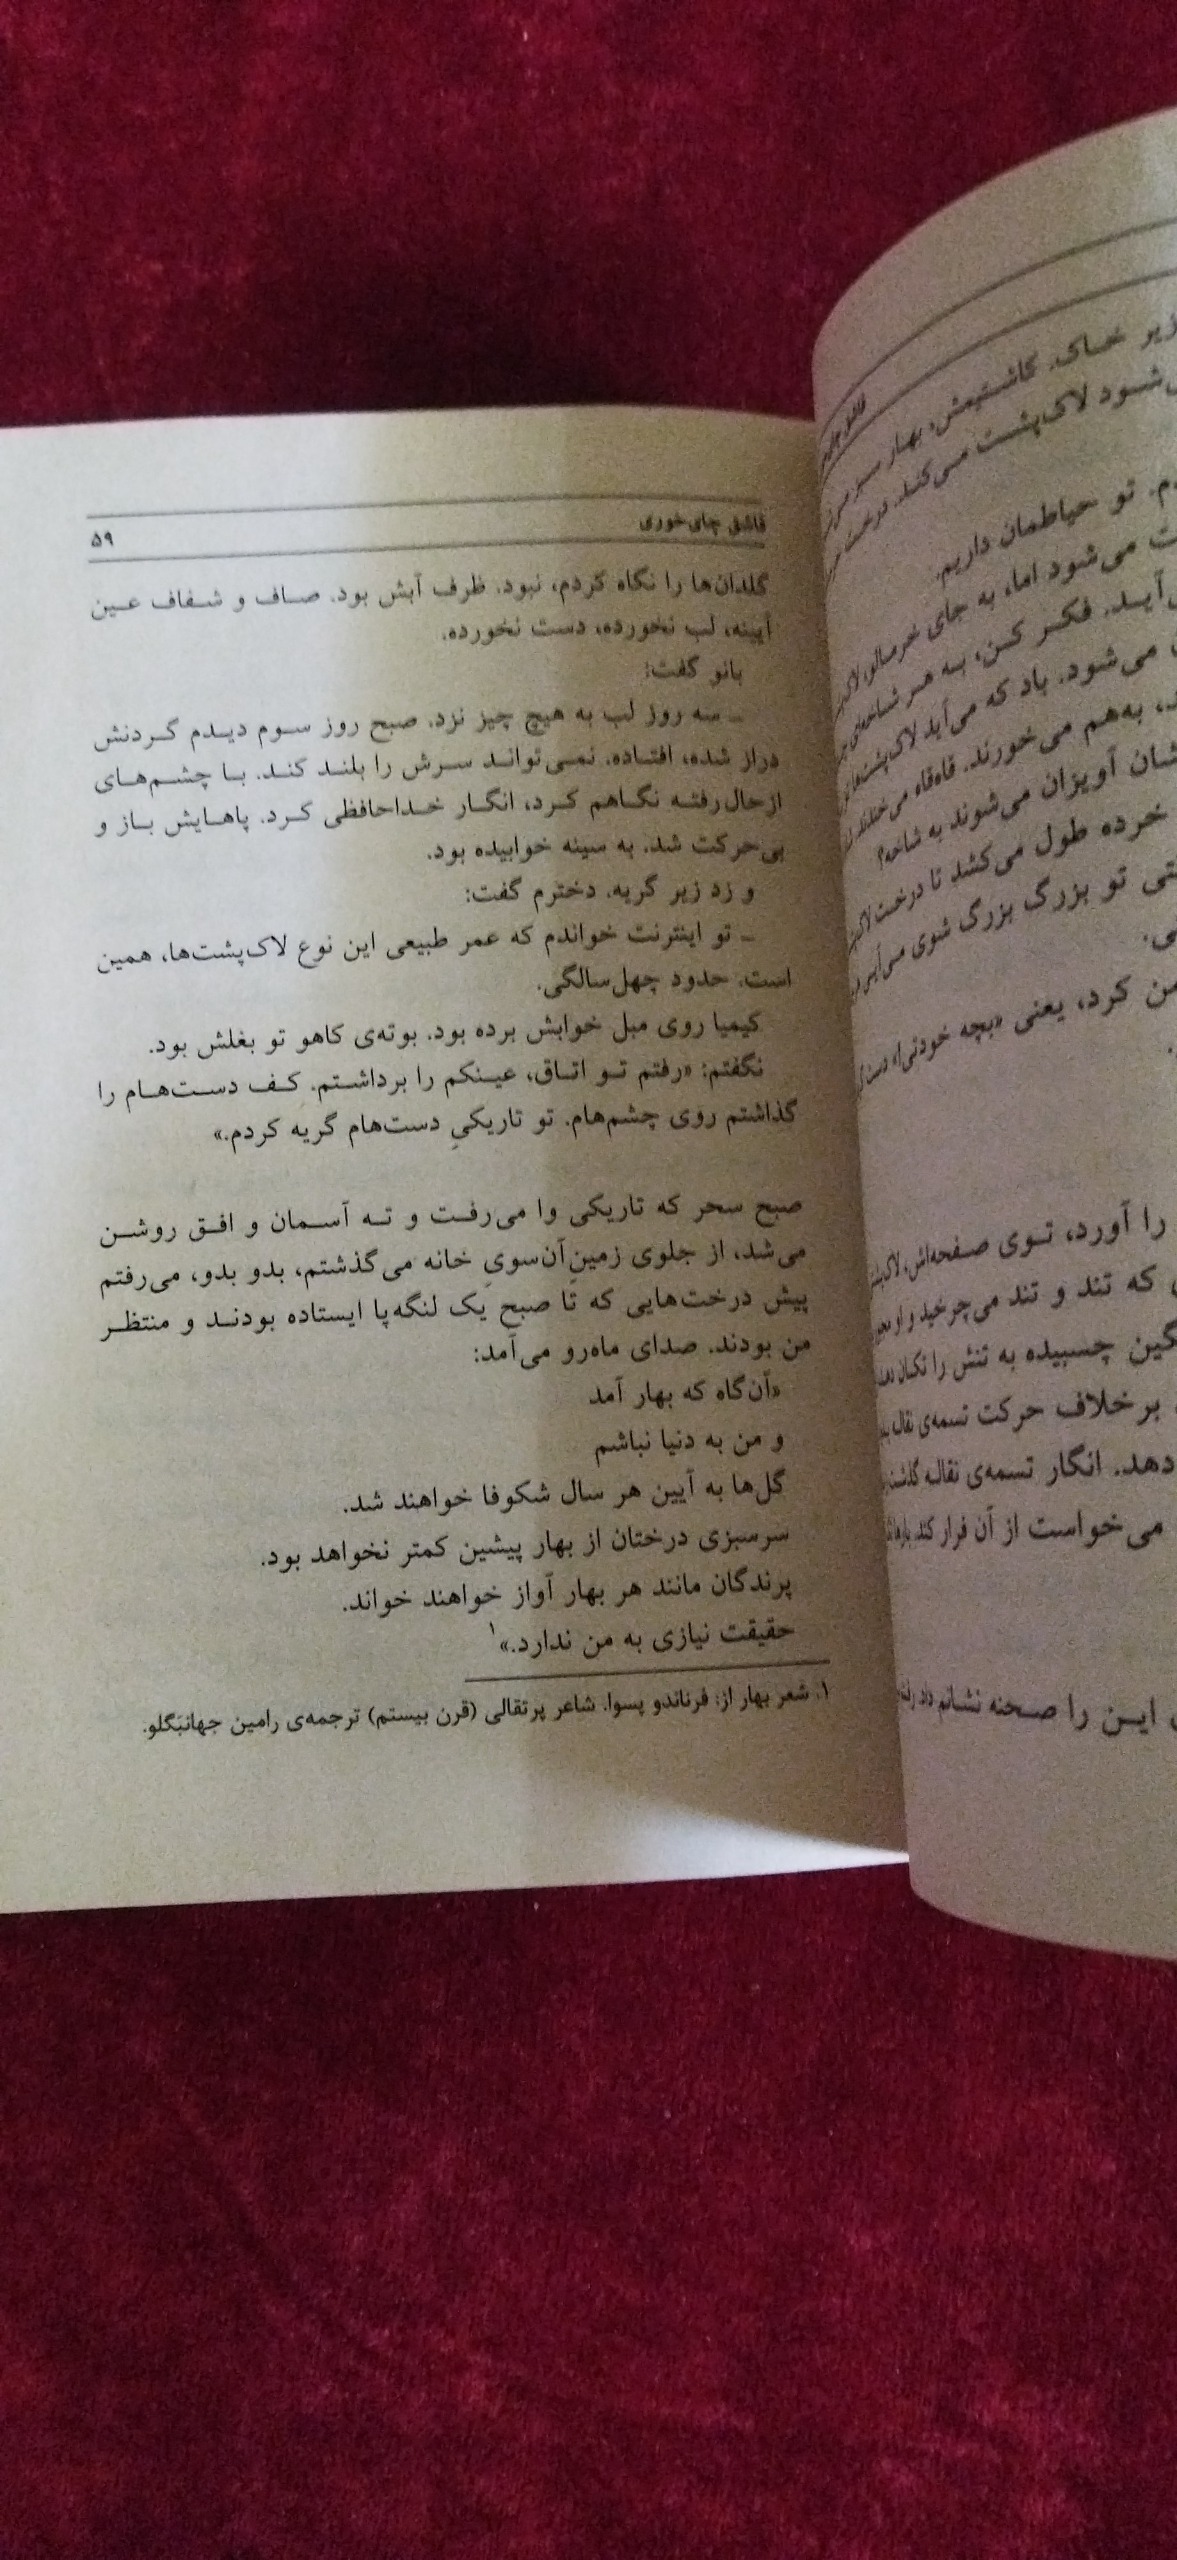 زیر خاک. کاشتیمش، بهار سبز
شود لاک‌پشت می‌کند. درخت
تو حیاطمان داریم.
می‌شود اما، به جای خرمالو، لاک
آید. فکر کن، به هر شاخه‌ای
می‌شود. باد که می‌آید لاک‌پشت‌ها
به‌هم می‌خورند. قاه‌قاه می‌خندند
شان آویزان می‌شوند به شاخه؟
خرده طول می‌کشد تا درخت
تو بزرگ بزرگ شوی
کرد، یعنی «بچه خودتی!»
را آورد، توی صفحه‌اش، لاک
که تند و تند می‌چرخید و او
چسبیده به تنش را تکان
برخلاف حرکت تسمه‌ی نقاله
دهد. انگار تسمه‌ی نقاله
می‌خواست از آن فرار کند
این را صحنه نشانم داد
قاشق چای‌خوری
۵۹
گلدان‌ها را نگاه کردم، نبود. ظرف آبش بود. صاف و شفاف عین
آیینه، لب نخورده، دست نخورده.
بانو گفت:
ـ سه روز لب به هیچ چیز نزد. صبح روز سوم دیدم گردنش
دراز شده، افتاده. نمی‌تواند سرش را بلند کند. با چشم‌های
ازحال‌رفته نگاهم کرد، انگار خداحافظی کرد. پاهایش باز و
بی‌حرکت شد. به سینه خوابیده بود.
و زد زیر گریه. دخترم گفت:
ـ تو اینترنت خواندم که عمر طبیعی این نوع لاک‌پشت‌ها، همین
است. حدود چهل‌سالگی.
کیمیا روی مبل خوابش برده بود. بوته‌ی کاهو تو بغلش بود.
نگفتم: «رفتم تو اتاق، عینکم را برداشتم. کف دست‌هام را
گذاشتم روی چشم‌هام. تو تاریکیِ دست‌هام گریه کردم.»
صبح سحر که تاریکی وا می‌رفت و ته آسمان و افق روشن
می‌شد، از جلوی زمینِ آن‌سویِ خانه می‌گذشتم، بدو بدو، می‌رفتم
پیش درخت‌هایی که تا صبح یک لنگه‌پا ایستاده بودند و منتظر
من بودند. صدای ماه‌رو می‌آمد:
«آن‌گاه که بهار آمد
و من به دنیا نباشم
گل‌ها به آیین هر سال شکوفا خواهند شد.
سرسبزی درختان از بهار پیشین کمتر نخواهد بود.
پرندگان مانند هر بهار آواز خواهند خواند.
حقیقت نیازی به من ندارد.»۱
۱. شعر بهار از: فرناندو پسوا. شاعر پرتقالی (قرن بیستم) ترجمه‌ی رامین جهانبگلو.